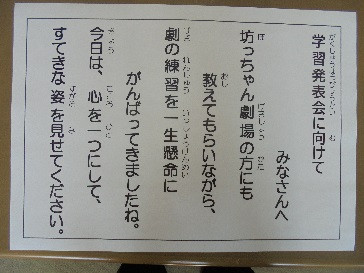 学習発表会に向けて
みなさんへ
坊っちゃん劇場の方にも
教えてもらいながら、
劇の練習を一生懸命に
がんばってきましたね。
今日は、心を一つにして、
すてきな姿を見せてください。